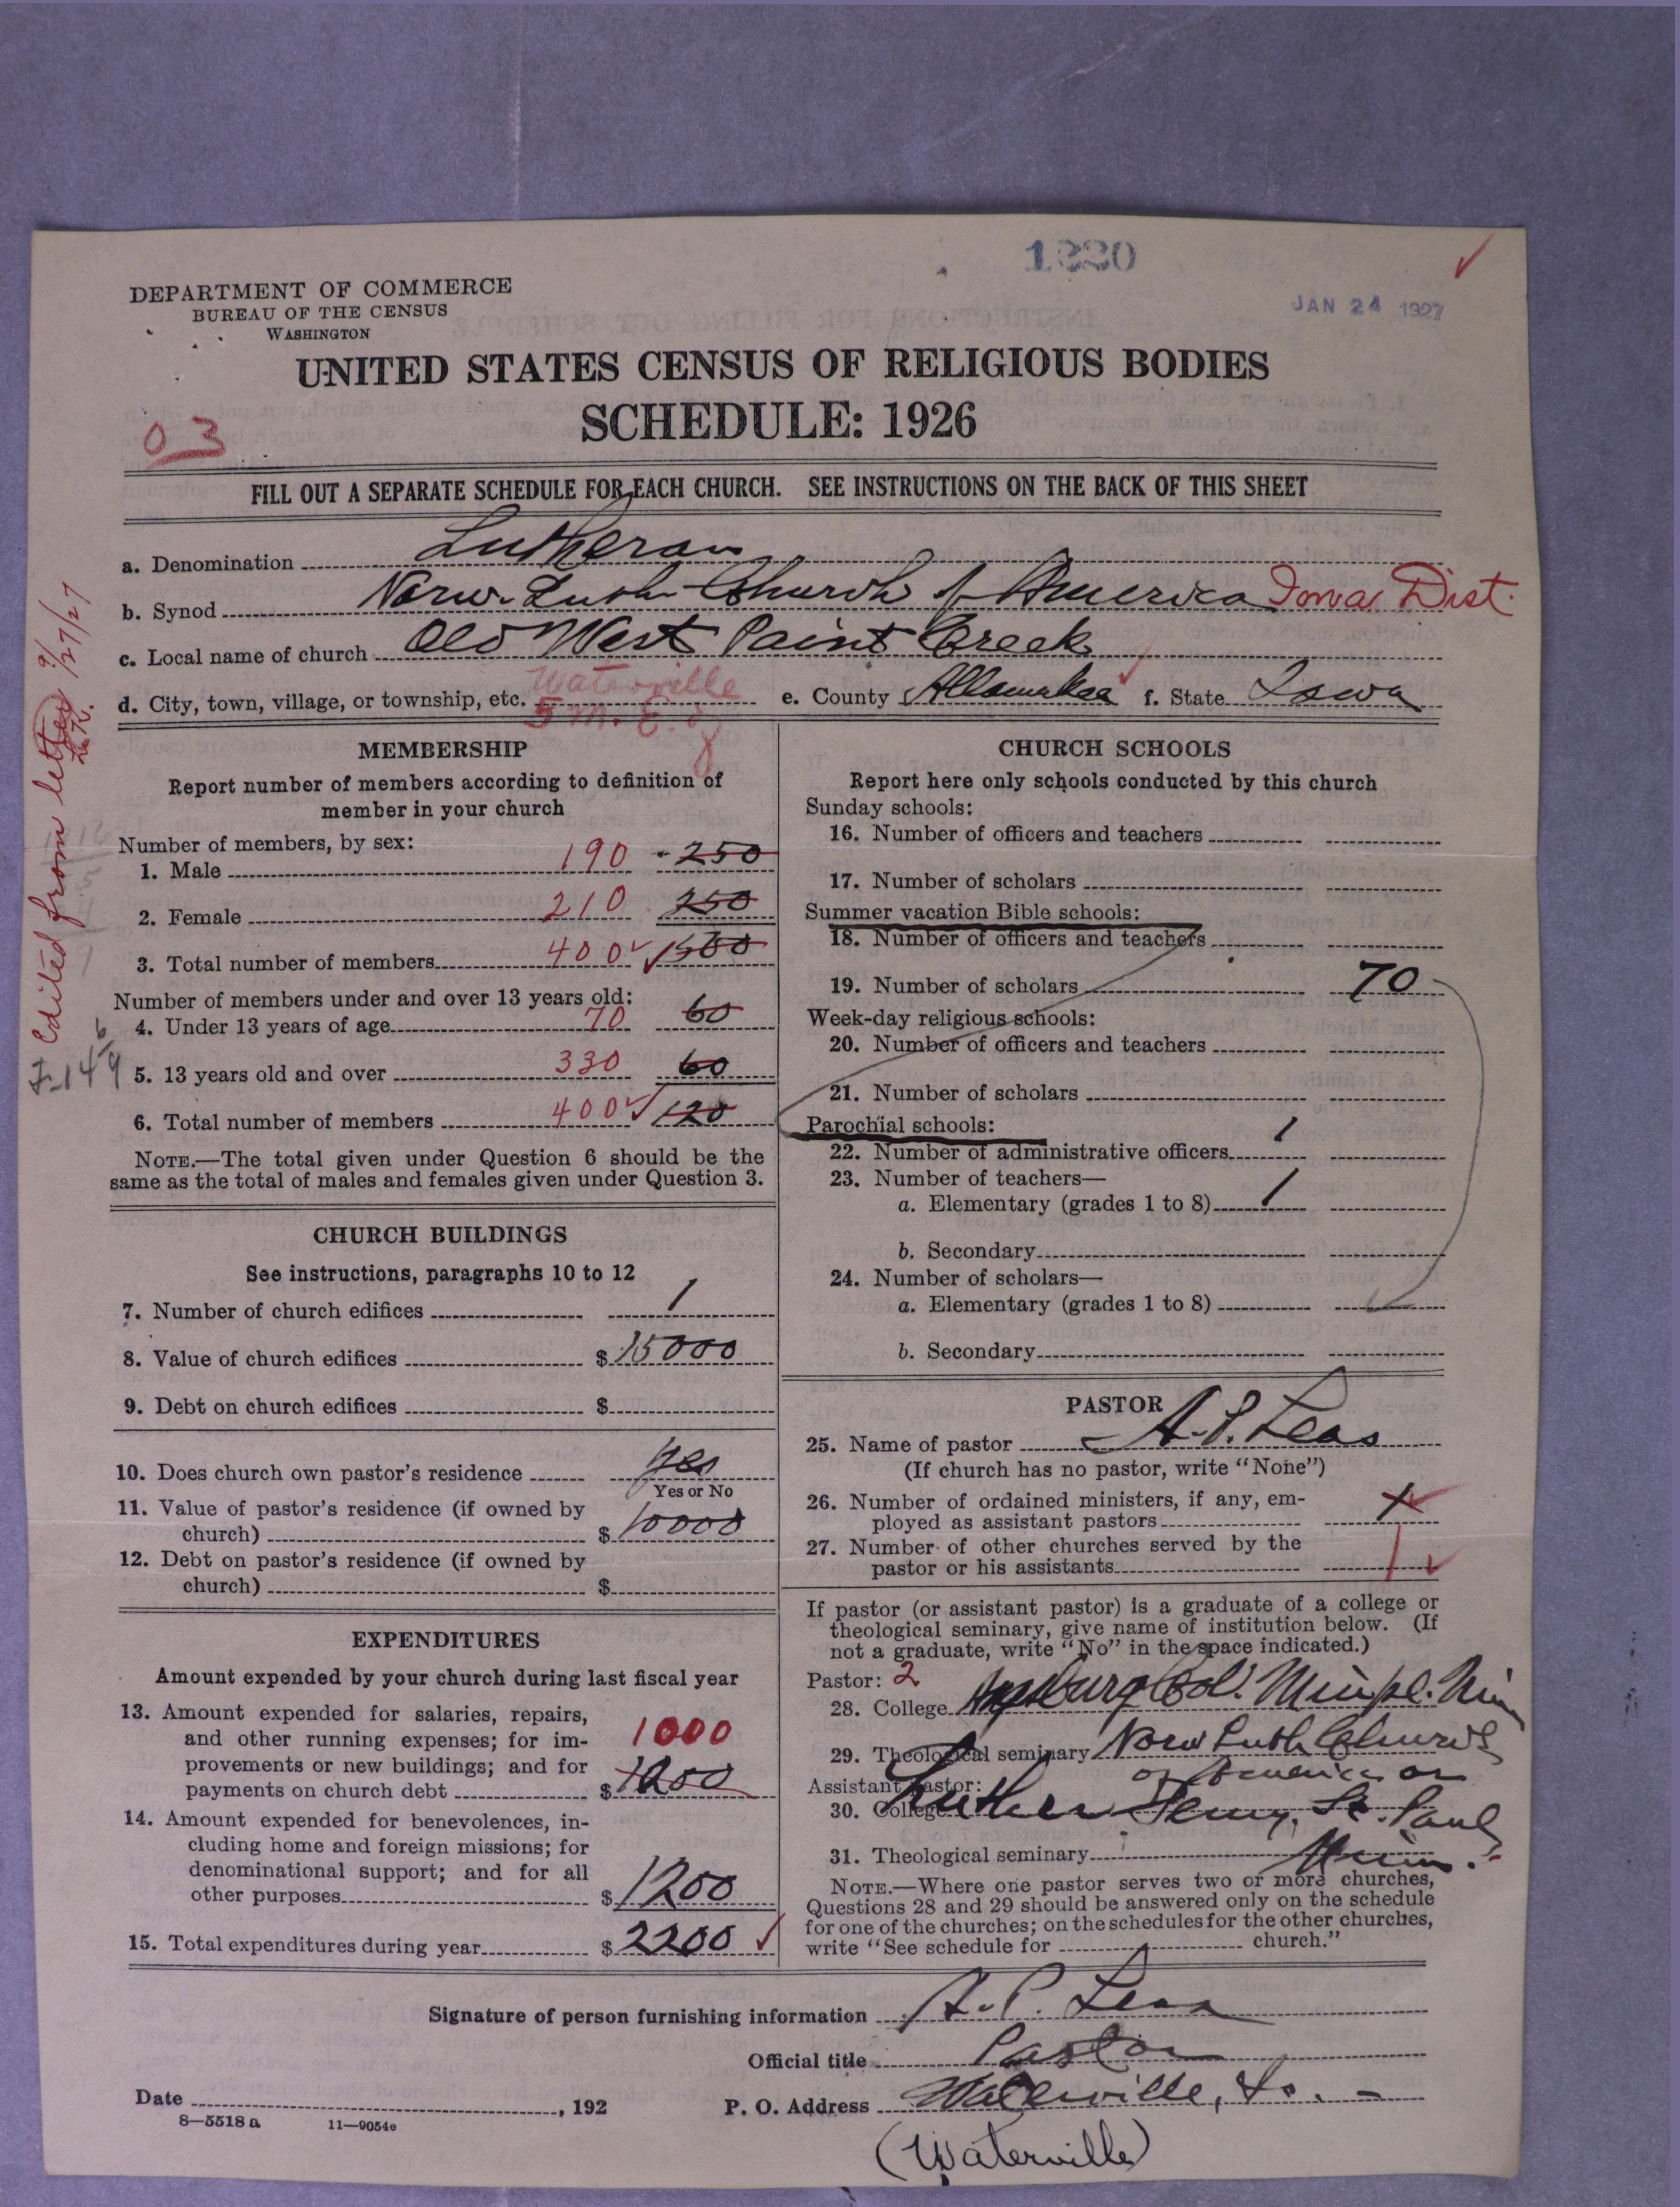 1220
JAN 24 1927
DEPARTMENT OF COMMERCE
BUREAU OF THE CENSUS
WASHINGTON
UNITED STATES CENSUS OF RELIGIOUS BODIES
SCHEDULE: 1926
03
FILL OUT A SEPARATE SCHEDULE FOR EACH CHURCH. SEE INSTRUCTIONS ON THE BACK OF THIS SHEET
a. Denomination Lutheran
b. Synod Norw. Luth Church of America Iowa Dist.
c. Local name of church Old West Paint Creek
d. City, town, village, or township, etc. Waterville e. County Allamakee f. State Iowa
5 m. E. of
Edited from letter 9/27/27
MEMBERSHIP
Report number of members according to definition of
member in your church
Number of members, by sex:
1. Male 190 250
2. Female 210 250
3. Total number of members 400 500
Number of members under and over 13 years old:
4. Under 13 years of age 70 60
5. 13 years old and over 330 60
6. Total number of members 400 120
NOTE.—The total given under Question 6 should be the
same as the total of males and females given under Question 3.
CHURCH BUILDINGS
See instructions, paragraphs 10 to 12
7. Number of church edifices 1
8. Value of church edifices $ 15000
9. Debt on church edifices $
10. Does church own pastor's residence yes
Yes or No
11. Value of pastor's residence (if owned by
church) $ 10000
12. Debt on pastor's residence (if owned by
church) $
EXPENDITURES
Amount expended by your church during last fiscal year
13. Amount expended for salaries, repairs,
and other running expenses; for im-
provements or new buildings; and for
payments on church debt $ 1000 1200
14. Amount expended for benevolences, in-
cluding home and foreign missions; for
denominational support; and for all
other purposes $ 1200
15. Total expenditures during year $ 2200
CHURCH SCHOOLS
Report here only schools conducted by this church
Sunday schools:
16. Number of officers and teachers
17. Number of scholars
Summer vacation Bible schools:
18. Number of officers and teachers
19. Number of scholars 70
Week-day religious schools:
20. Number of officers and teachers
21. Number of scholars
Parochial schools:
22. Number of administrative officers 1
23. Number of teachers—
a. Elementary (grades 1 to 8) 1
b. Secondary
24. Number of scholars—
a. Elementary (grades 1 to 8)
b. Secondary
PASTOR
25. Name of pastor A. P. Leas
(If church has no pastor, write "None")
26. Number of ordained ministers, if any, em-
ployed as assistant pastors
27. Number of other churches served by the
pastor or his assistants 1
If pastor (or assistant pastor) is a graduate of a college or
theological seminary, give name of institution below. (If
not a graduate, write "No" in the space indicated.)
Pastor: 2
28. College Augsburg Col. Minpl. Min
29. Theological seminary Norw Luth Church
of America or
Assistant pastor:
30. College Luther Semy. St. Paul
31. Theological seminary Minn.
NOTE.—Where one pastor serves two or more churches,
Questions 28 and 29 should be answered only on the schedule
for one of the churches; on the schedules for the other churches,
write "See schedule for church."
Signature of person furnishing information A. P. Leas
Official title Pastor
Date , 192
P. O. Address Waterville, Io.
8—5518a 11—9054e
(Waterville)